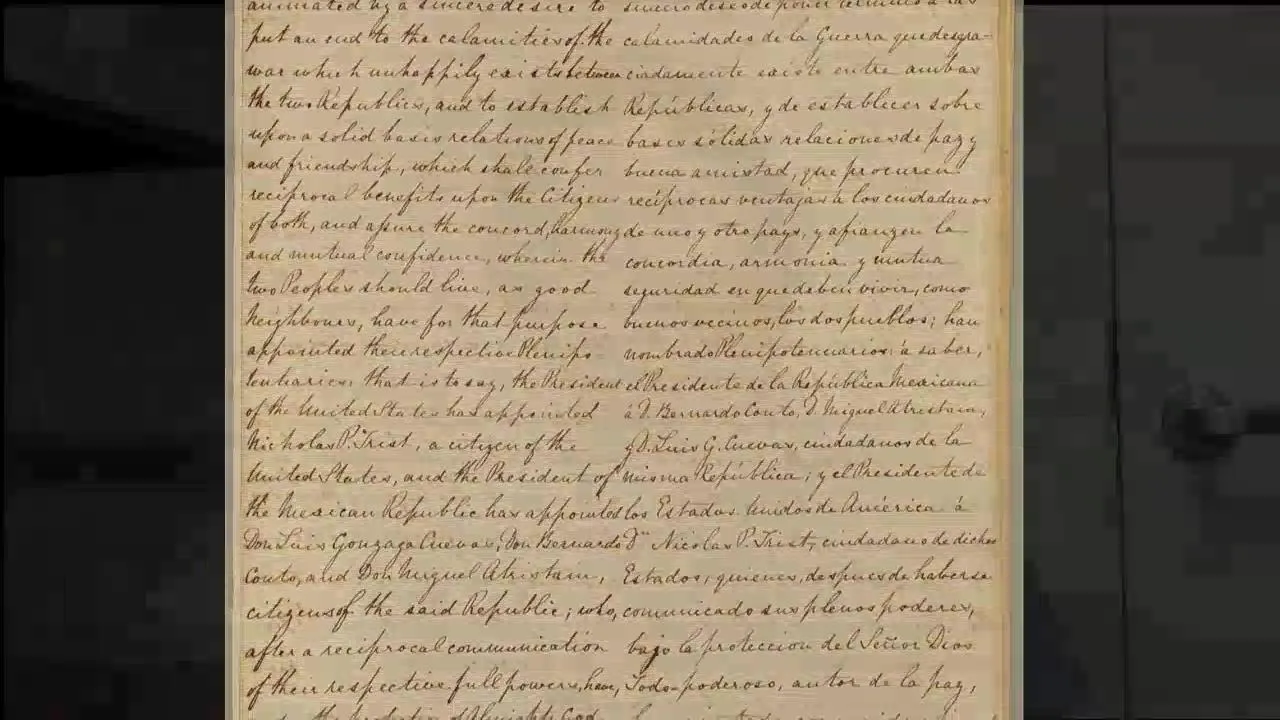 animated by a sincere desire to
put an end to the calamities of the
war which unhappily exists between
the two Republics, and to establish
upon a solid basis relations of peace
and friendship, which shall confer
reciprocal benefits upon the Citizens
of both, and assure the concord, harmony
and mutual confidence, wherein the
two Peoples should live, as good
Neighbours, have for that purpose
appointed their respective Plenipo-
tentiaries: that is to say, the President
of the United States has appointed
Nicholas P. Trist, a citizen of the
United States, and the President of
the Mexican Republic has appointed
Don Luis Gonzaga Cuevas, Don Bernardo
Couto, and Don Miguel Atristain,
citizens of the said Republic; who,
after a reciprocal communication
of their respective full powers, have,
the protection of Almighty God
sincero deseo de poner termino a las
calamidades de la Guerra que desgra-
ciadamente existe entre ambas
Repúblicas, y de establecer sobre
bases sólidas relaciones de paz y
buena amistad, que procuren
recíprocas ventajas a los ciudadanos
de uno y otro pays, y afianzen la
concordia, armonia y mutua
seguridad en que deben vivir, como
buenos vecinos, los dos pueblos; han
nombrado Plenipotenciarios: á saber,
el Presidente de la República Mexicana
á D. Bernardo Couto, D. Miguel Atristain,
y D. Luis G. Cuevas, ciudadanos de la
misma República; y el Presidente de
los Estados Unidos de América á
Dⁿ Nicolas P. Trist, ciudadano de dichos
Estados; quienes, despues de haberse
comunicado sus plenos poderes,
bajo la proteccion del Señor Dios
Todo-poderoso, autor de la paz,